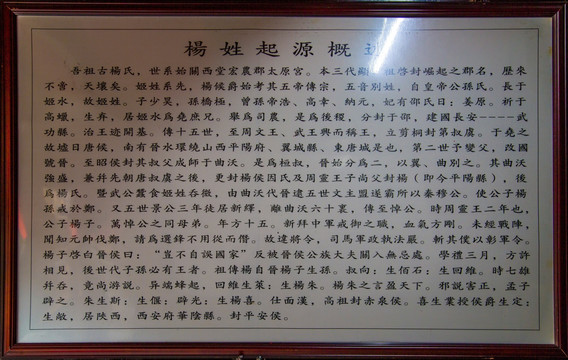 楊姓起源概述
吾祖古楊氏，世系始關西堂宏農郡太原宮。本三代顯祖啓封崛起之郡名，歷來
不啻，天壤矣。姬姓系先，楊侯爵始考其五帝傳宗，五音別姓，自皇帝公孫氏。長于
姬水，故姬姓。子少昊，孫橋極，曾孫帝浩，高幸、納元，妃有邵氏曰：姜原。祈于
高蠟，生弃，居姬水爲堯庶兄。舉爲司農，是爲後稷，分封于邵，建國長安----武
功縣。治王迹開基。傳十五世，至周文王、武王興而稱王，立剪桐封第叔虞。于堯之
故墟日唐侯，南有晉水環繞山西平陽府、翼城縣、東唐城是也，第二世予變父，改國
號晉。至昭侯封其叔父成師于曲沃。是爲桓叔，晉始分爲二，以翼、曲別之。其曲沃
強盛，兼并先朝唐叔虞之後，更封楊侯因氏及周靈王子尚父封楊（即今平陽縣），後
爲楊氏。暨武公蠶食姬姓吞微，由曲沃代晉遠五世文主盟遂霸所以秦穆公。使公子楊
孫戒於鄭。又五世景公三年徒居新繹，離曲沃六十裏，傳至悼公。時周靈王二年也，
公子楊子。萬悼公之同母弟。年方十五。新拜中軍戒御之職，血氣方剛。未經戰陣，
聞知元帥伐鄭，請爲選鋒不用從而僭。故違將令，司馬軍政執法嚴。斬其僕以彰軍令。
楊子啓白晉侯曰：“豈不自誤國家”反被晉侯公族大夫關入無忌處。學禮三月，方許
相見，後世代子孫必有王者。祖傳楊自晉楊子生孫。叔向：生佰石：生回維。時七雄
并吞，竟尚游說。异端蜂起，回維生萊：生楊朱。楊朱之言盈天下。邪說害正，孟子
辟之。朱生斯：生偃：辟光：生楊喜。仕面漢，高祖封赤泉侯。喜生業授侯爵生定：
生敞，居陝西，西安府華陰縣。封平安侯。